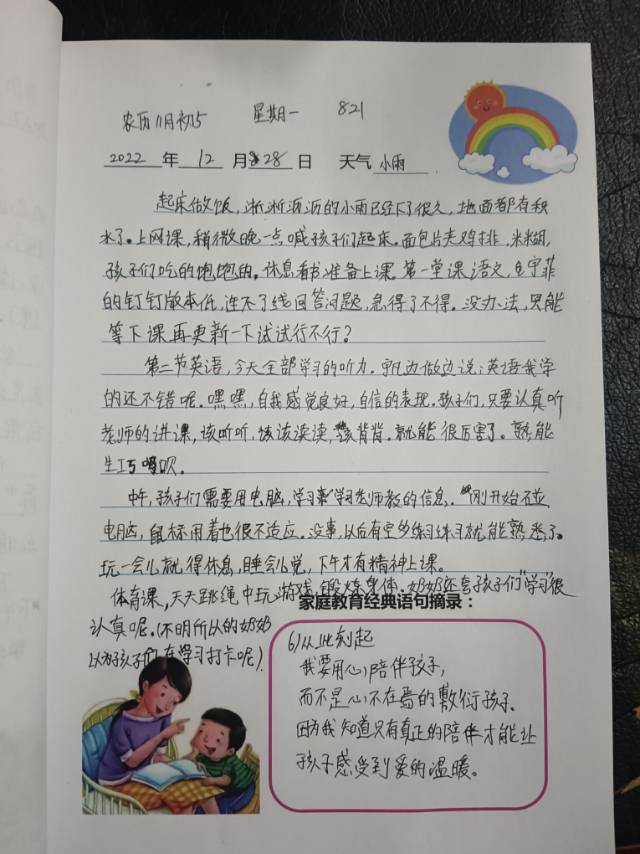 农历11月初5 星期一 821
2022 年 12 月 28 日 天气 小雨
起床做饭,淅淅沥沥的小雨已经下了很久,地面都有积
水了。上网课,稍微晚一点喊孩子们起床。面包片夹鸡排,米糊,
孩子们吃的饱饱的。休息看书准备上课。第一堂课语文,
的钉钉版本低,连不了线回答问题,急得了不得。没办法,只能
等下课再更新一下试试行不行?
第二节英语,今天全部学习的听力。边做边说:英语我学
的还不错呢。嘿嘿,自我感觉良好,自信的表现。孩子们,只要认真听
老师的讲课,该听听,该读读,该背背。就能很厉害了。熟能
生巧呗。
中午,孩子们需要用电脑,学习学习老师教的信息。刚开始不碰
电脑,鼠标用着也很不适应。没事,以后有空多练习练习就能熟悉了。
玩一会儿就得休息,睡会儿觉,下午才有精神上课。
体育课,天天跳绳中玩游戏锻炼身体。奶奶还夸孩子们“学习”很
认真呢。(不明所以的奶奶
以为孩子们在学习打卡呢)
家庭教育经典语句摘录:
6)从此刻起
我要用心陪伴孩子,
而不是心不在焉的敷衍孩子.
因为我知道只有真正的陪伴才能让
孩子感受到爱的温暖。